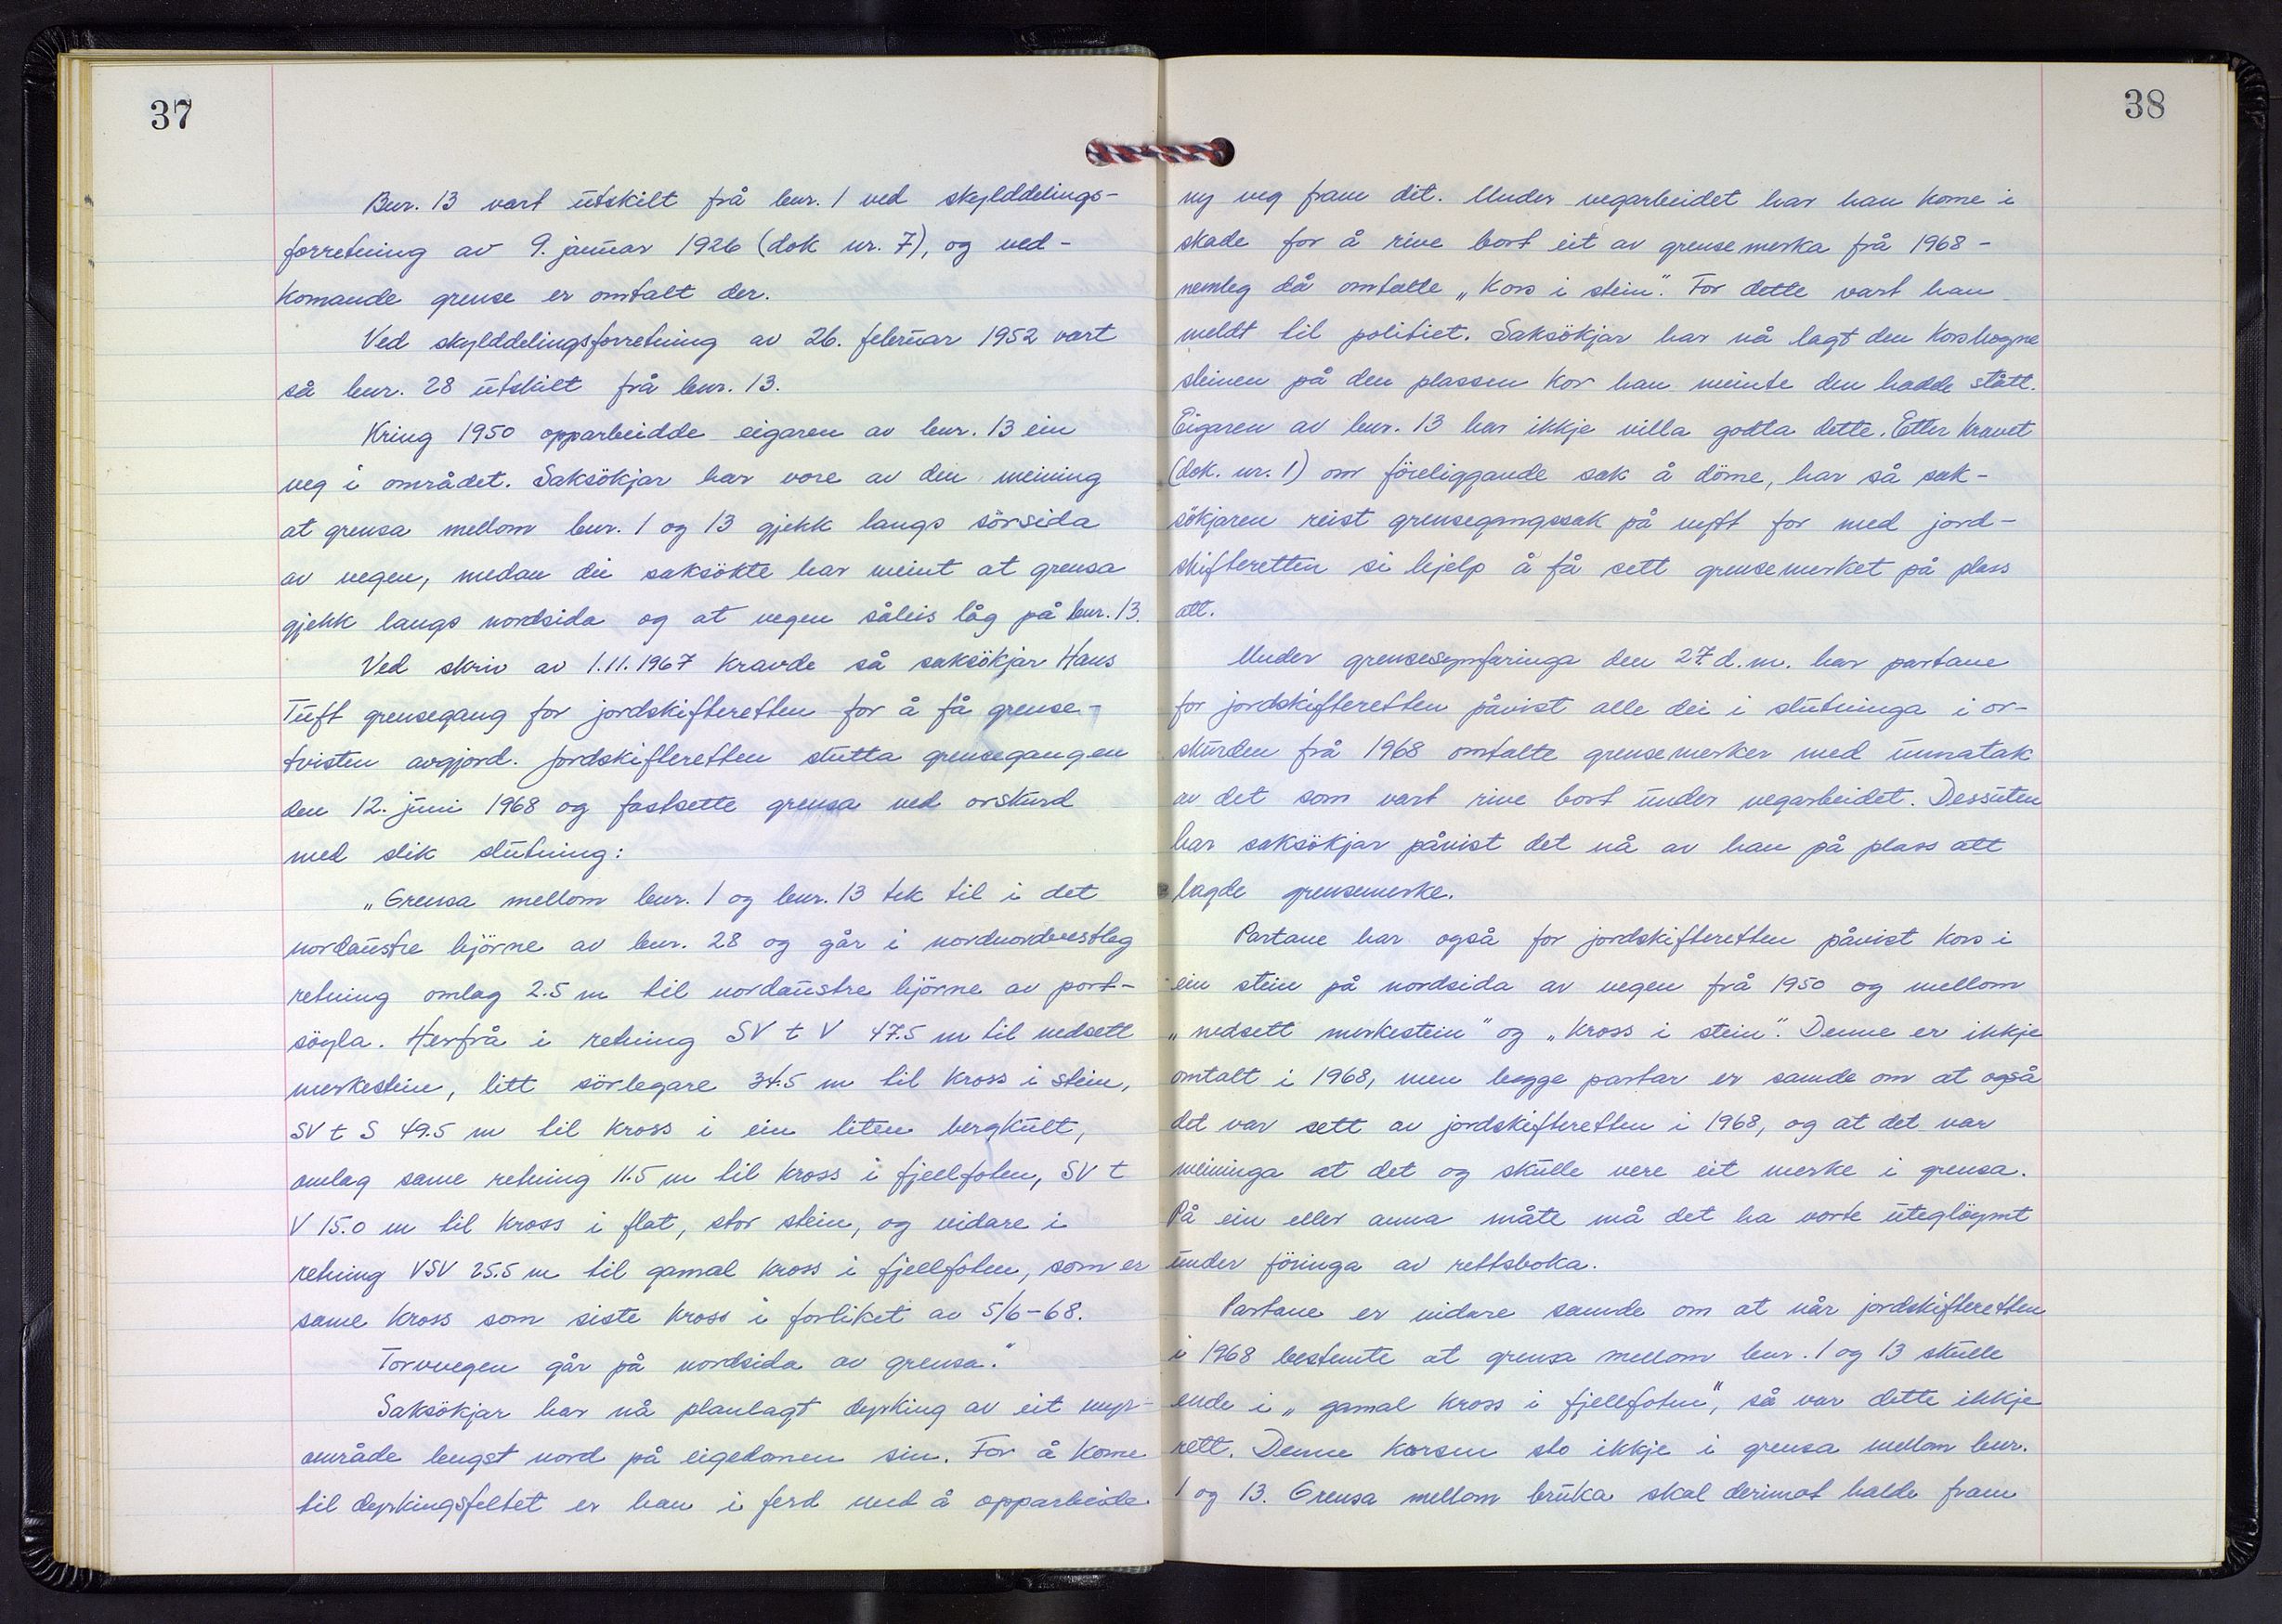 37
Bnr. 13 vart utskilt frå bnr. 1 ved skylddelings-
forretning av 9. januar 1926 (dok nr. 7), og ved-
komande grense er omtalt der.
Ved skylddelingsforretning av 26. februar 1952 vart
så bnr. 28 utskilt frå bnr. 13.
Kring 1950 opparbeidde eigaren av bnr. 13 ein
veg i området. Saksökjar har vore av den meining
at grensa mellom bnr. 1 og 13 gjekk langs sörsida
av vegen, medan dei saksökte har meint at grensa
gjekk langs nordsida og at vegen såleis låg på bnr. 13.
Ved skriv av 1.11.1967 kravde så saksökjar Hans
Tuft grensegang for jordskifteretten for å få grense-
tvisten avgjord. Jordskifteretten slutta grensegangen
den 12. juni 1968 og fastsette grensa ved orskurd
med slik slutning:
„Grensa mellom bnr. 1 og bnr. 13 tek til i det
nordaustre hjörne av bnr. 28 og går i nordnordvestleg
retning omlag 2.5 m til nordaustre hjörne av port-
söyla. Herfrå i retning SV t V 47.5 m til nedsett
merkestein, litt sörlegare 34.5 m til kross i stein,
SV t S 49.5 m til kross i ein liten bergkult,
omlag same retning 11.5 m til kross i fjellfoten, SV t
V 15.0 m til kross i flat, stor stein, og vidare i
retning VSV 25.5 m til gamal kross i fjellfoten, som er
same kross som siste kross i forliket av 5/6-68.
Torvvegen går på nordsida av grensa."
Saksökjar har nå planlagt dyrking av eit myr-
område lengst nord på eigedomen sin. For å kome
til dyrkingsfeltet er han i ferd med å opparbeide
38
ny veg fram dit. Under vegarbeidet har han kome i
skade for å rive bort eit av grensemerka frå 1968 -
nemleg då omtalte „Kors i stein". For dette vart han
meldt til politiet. Saksökjar har nå lagt den korshogne
steinen på den plassen kor han meinte den hadde stått.
Eigaren av bnr. 13 har ikkje villa godta dette. Etter kravet
(dok. nr. 1) om föreliggande sak å döme, har så sak-
sökjaren reist grensegangssak på nytt for med jord-
skifteretten si hjelp å få sett grensemerket på plass
att.
Under grensesynfaringa den 27. d.m. har partane
for jordskifteretten påvist alle dei i slutninga i or-
skurden frå 1968 omtalte grensemerker med unnatak
av det som vart rive bort under vegarbeidet. Dessuten
har saksökjar påvist det nå av han på plass att
lagde grensemerke.
Partane har også for jordskifteretten påvist kors i
ein stein på nordsida av vegen frå 1950 og mellom
„nedsett merkestein" og „kross i stein". Denne er ikkje
omtalt i 1968, men begge partar er samde om at også
det var sett av jordskifteretten i 1968, og at det var
meininga at det og skulle vere eit merke i grensa.
På ein eller anna måte må det ha vorte uteglöymt
under föringa av rettsboka.
Partane er vidare samde om at når jordskifteretten
i 1968 bestemte at grensa mellom bnr. 1 og 13 skulle
ende i „gamal kross i fjellfoten", så var dette ikkje
rett. Denne korsen sto ikkje i grensa mellom bnr.
1 og 13. Grensa mellom bruka skal derimot halde fram